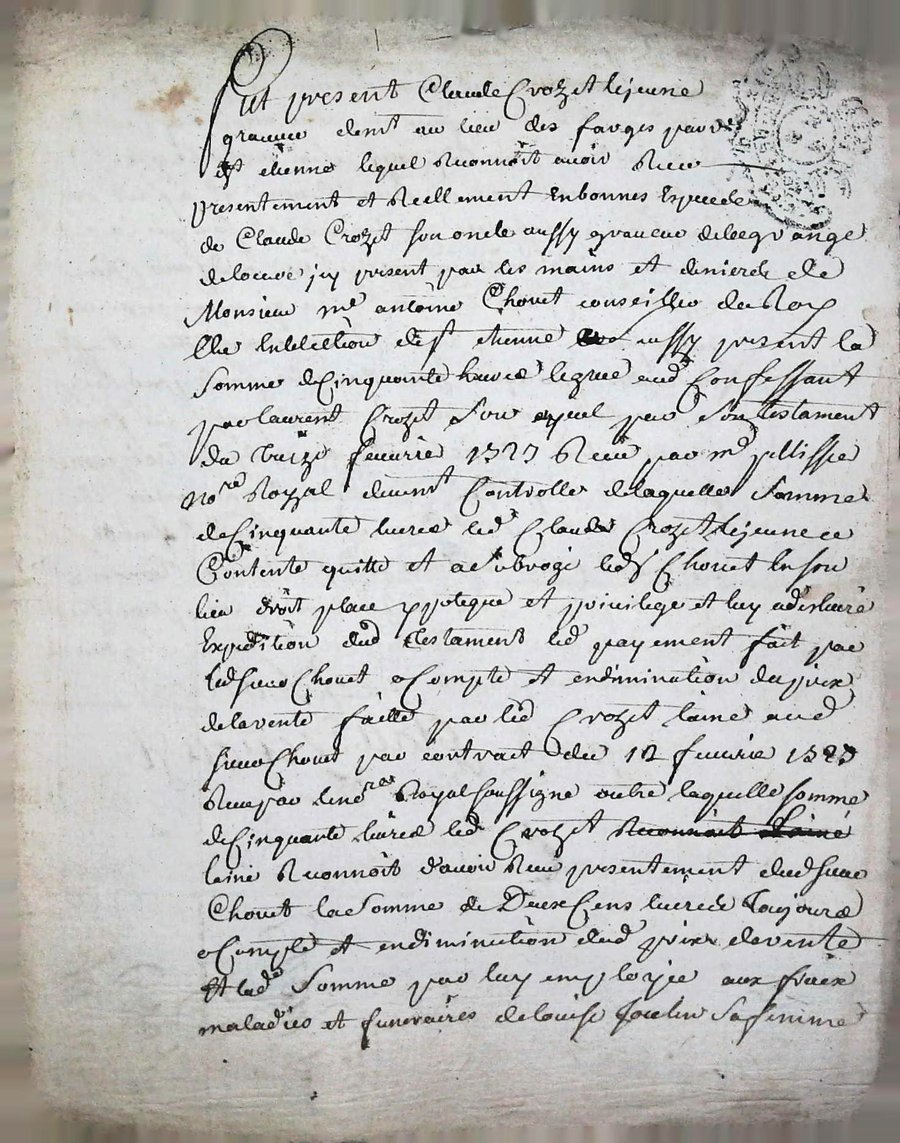 Fut present Claude Crozet le jeune
graveur demt au lieu des farges parr
St etienne lequel Reconnoit avoir Receu
presentement et Reellement En bonnes Especes
de Claude Crozet son oncle aussy graveur de la grange
de loeuvre jcy present par les mains et deniers de
Monsieur me antoine Chovet conseiller du Roy
En lelection de st etienne aussy present la
somme de Cinquante livres legue aud
par laurent Crozet son ayeul par son testament
du treize fevrier 1727 Receu par me pellissier
nore Royal duemt Controlle de laquelle somme
de Cinquante livres led Claude Crozet le jeune ce
Contente quitte et a subroge led s Chovet En son
lieu droit place ypoteque et privilege et luy a deslivré
Expedition dud testament led payement fait par
led sieur Chovet a Compte et en diminution du prix
de la vente faitte par led Crozet laine aud
sieur Chovet par contrait du 12 fevrier
Receu par le nore Royal soussigne outre laquelle somme
de Cinquante livres led Crozet
laine Reconnoit d'avoir Receu presentement dud sieur
Chovet la somme de Deux Cens livres de Toujours
a Compte et en diminution dud prix de vente
Et lad somme par luy employée aux fraix
maladies et funeraires de louise sa femme